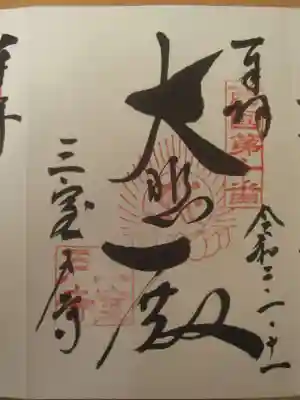 奉拝
西国第十番
大悲殿
令和二・一・十一
三室戸寺